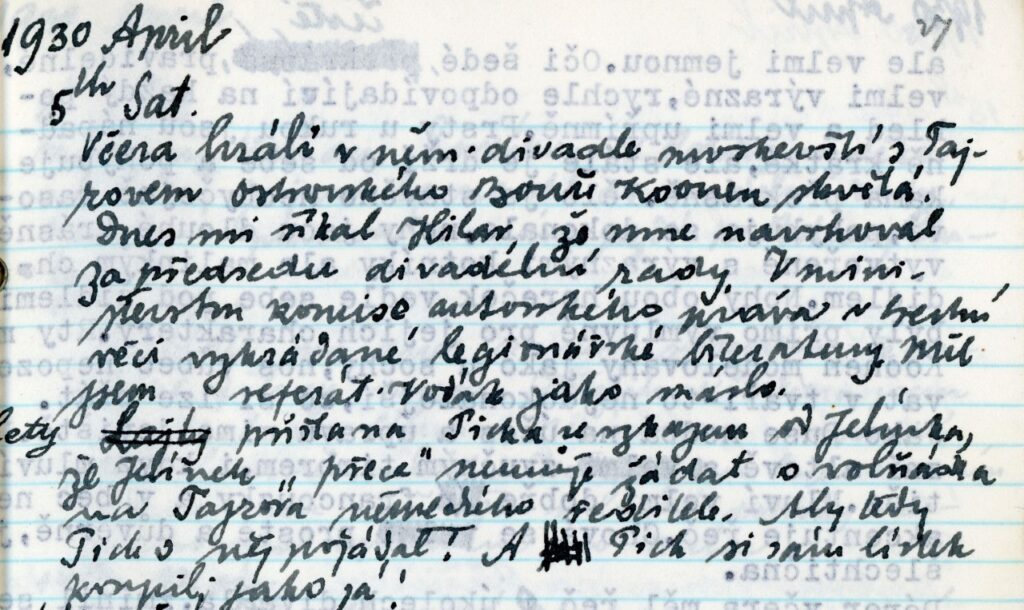 1930 April 27
5th Sat.
Včera hráli v něm. divadle moskevští s Taj-
rovem Ostrovského Bouři Koonen skvělá.
Dnes mi říkal Hilar, že mne navrhoval
za předsedu divadelní rady. V mini-
sterstvu komise autorského práva v trestní
věci vykrádané legionářské literatury. Měl
jsem referát. Vodák jako máslo.
lety Lajty přišla na Picka se vzkazem od Jelínka,
že Jelínek „přece“ nemůže žádat o volňáska
na Tajrova německého ředitele. Aby tedy
Pick o něj požádal! A Pick si sám lístek
koupil, jako já!